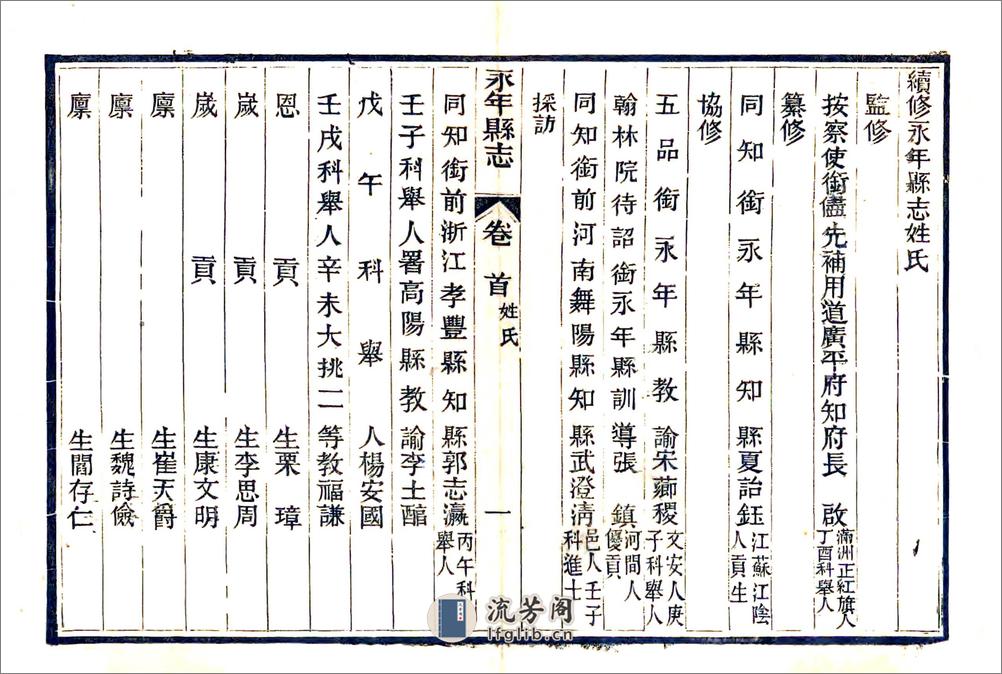 續修永年縣志姓氏
監修
按察使銜儘先補用道廣平府知府長 啟 滿洲正紅旗人丁酉科舉人
纂修
同知銜永年縣知縣夏詒鈺 江蘇江陰人貢生
協修
五品銜永年縣教諭宋薌稷 文安人庚子科舉人
翰林院待詔銜永年縣訓導張 鎮 河間人優貢
同知銜前河南舞陽縣知縣武澄清 邑人壬子科進士
採訪
永年縣志 卷首 姓氏 一
同知銜前浙江孝豐縣知縣郭志瀛 丙午科舉人
壬子科舉人署高陽縣教諭李士醕
戊午科舉人楊安國
壬戌科舉人辛未大挑二等教福謙
恩貢生栗璋
歲貢生李思周
歲貢生康文明
廩生崔天爵
廩生魏詩儉
廩生閻存仁
流芳阁
lfglib.cn